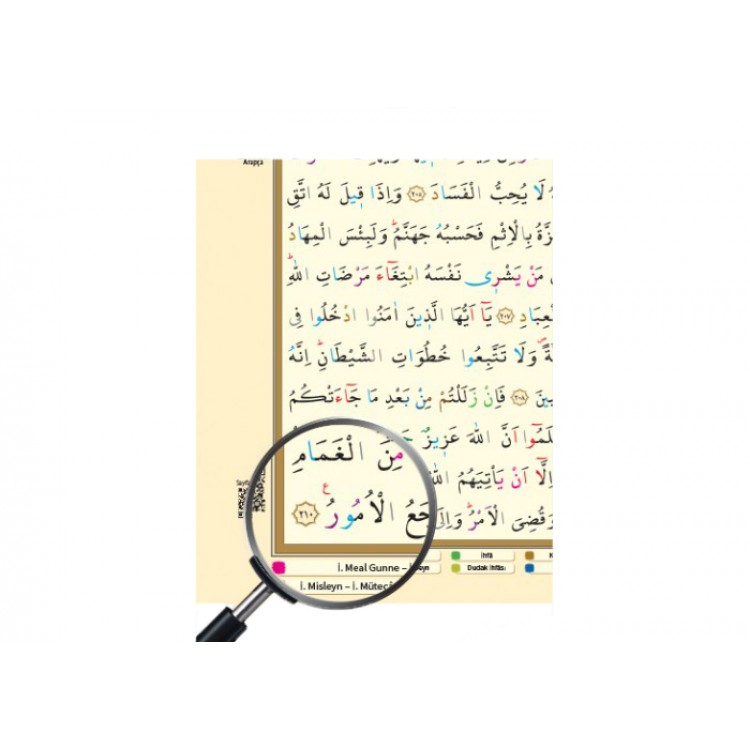 Arapça
لَا يُحِبُّ الْفَسَادَ ﴿٢٠٥﴾ وَاِذَا ق۪يلَ لَهُ اتَّقِ
ـزَّةُ بِالْاِثْمِ فَحَسْبُهُ جَهَنَّمُ وَلَبِئْسَ الْمِهَادُ
مَنْ يَشْر۪ي نَفْسَهُ ابْتِغَٓاءَ مَرْضَاتِ اللّٰهِ
ـعِبَادِ ﴿٢٠٧﴾ يَٓا اَيُّهَا الَّذ۪ينَ اٰمَنُوا ادْخُلُوا فِي
ـةً وَلَا تَتَّبِعُوا خُطُوَاتِ الشَّيْطَانِ اِنَّهُ
ـينَ ﴿٢٠٨﴾ فَاِنْ زَلَلْتُمْ مِنْ بَعْدِ مَا جَٓاءَتْكُمُ
ـلَمُٓوا اَنَّ اللّٰهَ عَز۪يزٌ
اِلَّٓا اَنْ يَأْتِيَهُمُ اللّٰهُ مِنَ الْغَمَامِ
وَقُضِيَ الْاَمْرُ وَاِلَى ـجَعُ الْاُمُورُ ﴿٢١٠﴾
İhfâ
İ. Meal Gunne – İ.
Dudak İhfâsı
İ. Misleyn – İ. Mütecâ